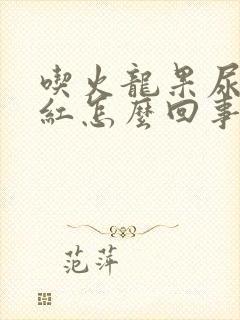 喫火龍果尿
紅怎麼回事
范萍